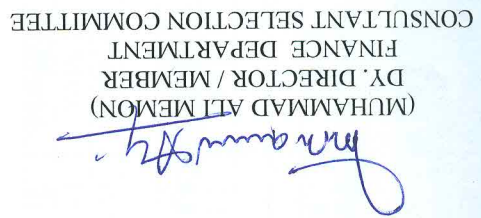 (MUHAMMAD ALI MEMON)
DY. DIRECTOR / MEMBER
FINANCE DEPARTMENT
CONSULTANT SELECTION COMMITTEE